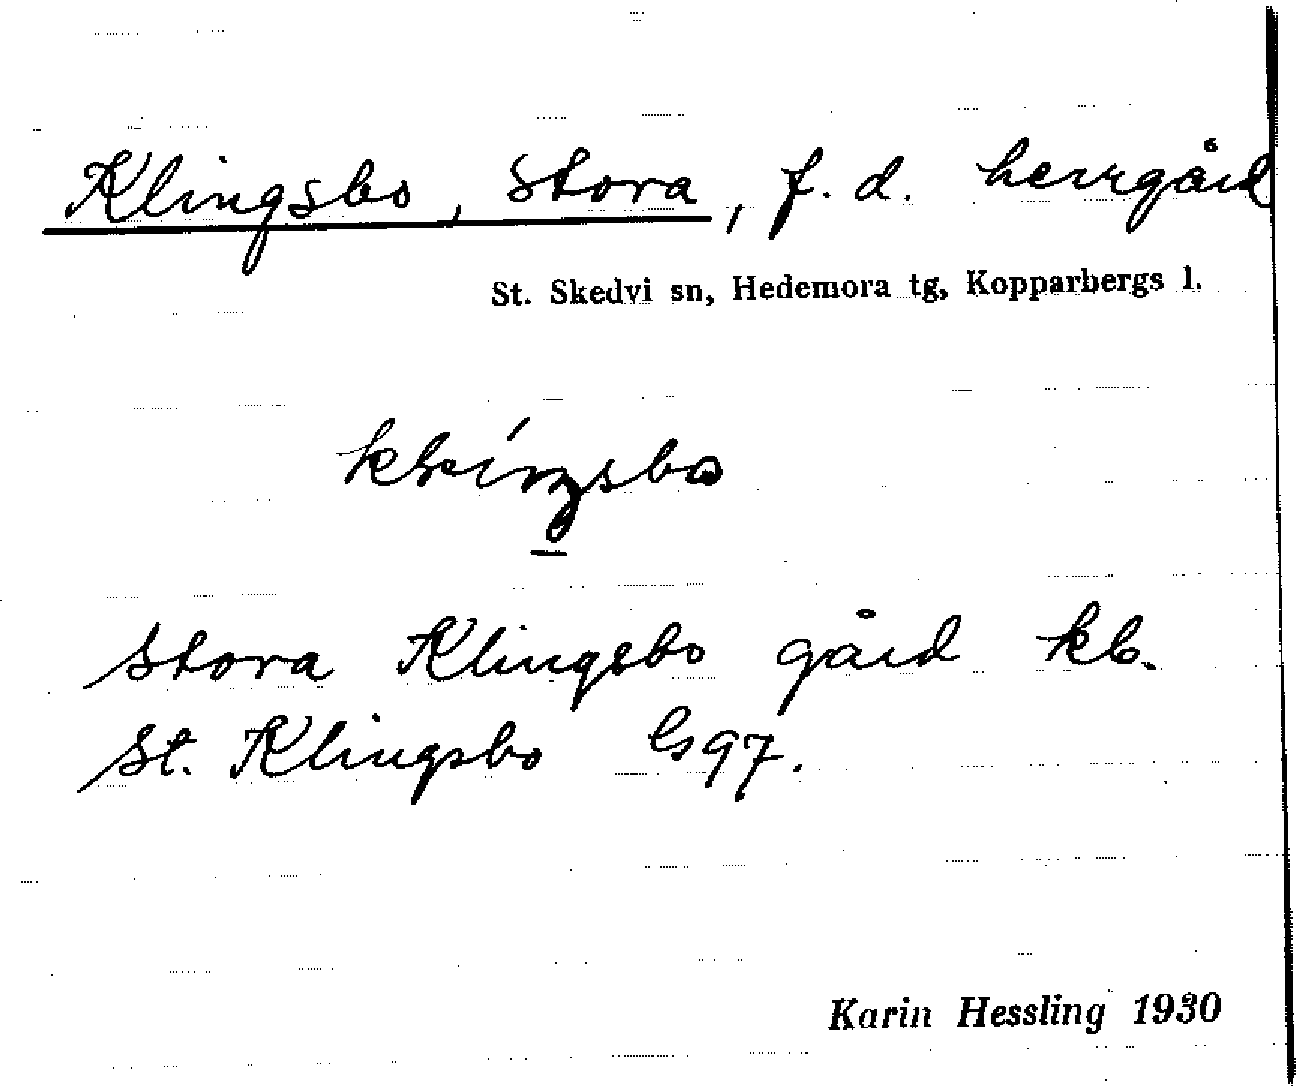 Klingsbo, Stora, f. d. herrgård
St. Skedvi sn, Hedemora tg, Kopparbergs l.
Stora Klingsbo gård kb.
St. Klingsbo Gs 97.
Karin Hessling 1930